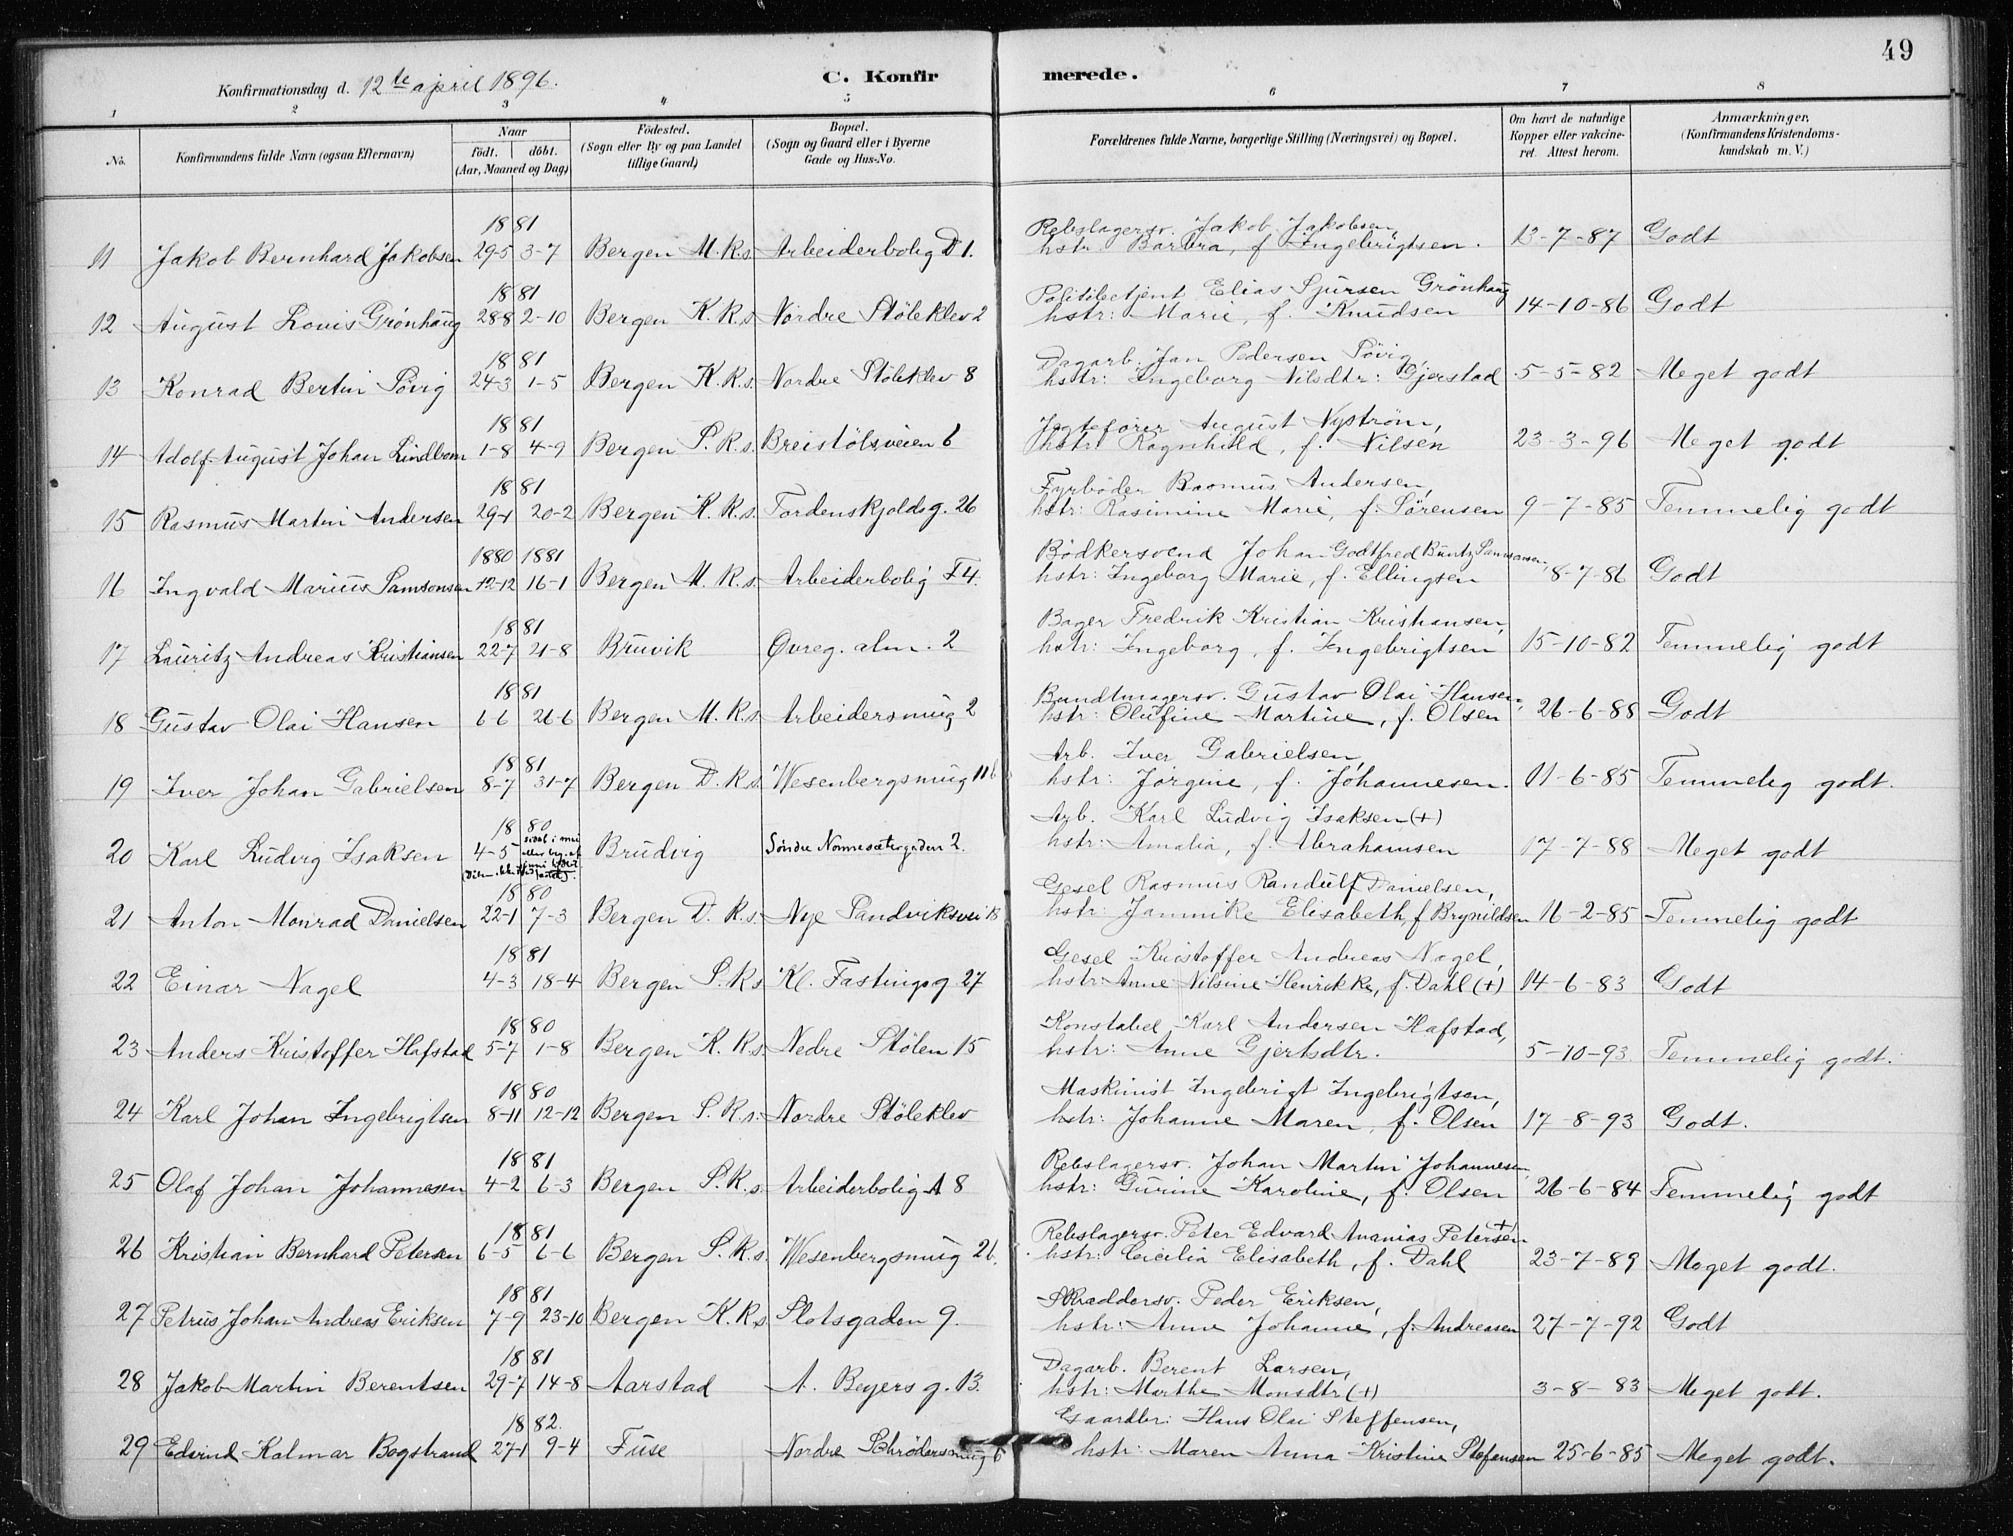 49
Konfirmationsdag d. 12te april 1896.
C. Konfirmerede.
1 2 3 4 5 6 7 8
No. | Konfirmandens fulde Navn (ogsaa Efternavn) | Naar født. | døbt. (Aar, Maaned og Dag) | Fødested. (Sogn eller By og paa Landet tillige Gaard) | Bopæl. (Sogn og Gaard eller i Byerne Gade og Hus-No. | Forældrenes fulde Navne, borgerlige Stilling (Næringsvei) og Bopæl. | Om havt de naturlige Kopper eller vakcineret. Attest herom. | Anmærkninger. (Konfirmandens Kristendomskundskab m. V.)
1881 Rebslagersv. Jakob Jakobsen,
11 Jakob Bernhard Jakobsen 29-5 3-7 Bergen M. K.s. Arbeiderbolig D 1. hstr: Barbra, f. Ingebrigtsen. 13-7-87 Godt
1881 Politibetjent Elias Sjursen Grönhaug
12 August Louis Grønhaug 28-8 2-10 Bergen K. K.s Nordre Stöleklev 2 hstr: Marie, f. Knudsen 14-10-86 Godt
1881 Dagarb. Jan Pedersen Sövig,
13 Konrad Bertin Sövig 24-3 1-5 Bergen K. K.s. Nordre Stöleklev 8 hstr: Ingeborg Nilsdtr: Gjerstad 5-5-82 Meget godt
1881 Jagtefører August Nyström,
14 Adolf August Johan Lindbom 1-8 4-9 Bergen S. K.s. Breistölsveien 6 hstr: Ragnhild, f. Nilsen 23-3-96 Meget godt
1881 Fyrbøder Rasmus Andersen,
15 Rasmus Martin Andersen 29-1 20-2 Bergen K. K.s. Tordenskjoldsg. 26 hstr: Rasimine Marie, f. Sörensen 9-7-85 Temmelig godt
1880 1881 Bødkersvend Johan Godtfred Buntz Samsonsen,
16 Ingvald Marius Samsonsen 12-12 16-1 Bergen M. K.s. Arbeiderbolig F 4. hstr: Ingeborg Marie, f. Ellingsen 8-7-86 Godt
1881 Bager Fredrik Kristian Kristiansen,
17 Lauritz Andreas Kristiansen 22-7 21-8 Bruvik Øvreg. alm. 2 hstr: Ingeborg, f. Ingebrigtsen 15-10-82 Temmelig godt
1881 Bundtmagersv. Gustav Olai Hansen,
18 Gustav Olai Hansen 6-6 26-6 Bergen M. K.s Arbeidersmug 2 hstr: Olufine Martine, f. Olsen 26-6-88 Godt
1881 Arb. Iver Gabrielsen,
19 Iver Johan Gabrielsen 8-7 31-7 Bergen D. K.s. Wesenbergsmug 11 b hstr: Jörgine, f. Johannesen. 11-6-85 Temmelig godt.
1880 Arb. Karl Ludvig Isaksen (+)
20 Karl Ludvig Isaksen 4-5 Brudvig Söndre Nonnesætergaden 2. hstr: Amalia, f. Abrahamsen 17-7-88 Meget godt
1880 Gesel Rasmus Randulf Danielsen,
21 Anton Monrad Danielsen 22-1 7-3 Bergen D. K.s. Nye Sandviksvei hstr: Jannike Elisabeth, f Brynildsen 16-2-85 Temmelig godt
1881 Gesel Kristoffer Andreas Nagel,
22 Einar Nagel 4-3 18-4 Bergen S. K.s Kl. Fastingsg. 27 hstr: Anne Nilsine Henrikke, f. Dahl (+) 14-6-83 Godt
1880 Konstabel Karl Andersen Hafstad,
23 Anders Kristoffer Hafstad 5-7 1-8 Bergen K. K.s. Nedre Stølen 15 hstr: Anne Gjertsdtr. 5-10-93 Temmelig godt.
1880 Maskinist Ingebrigt Ingebrigtsen,
24 Karl Johan Ingebrigtsen 8-11 12-12 Bergen S. K.s. Nordre Stöleklev hstr: Johanne Maren, f. Olsen 17-8-93 Godt.
1881 Rebslagersv. Johan Martin Johannesen
25 Olaf Johan Johannesen 4-2 6-3 Bergen S. K.s. Arbeiderbolig A 8 hstr: Gurine Karoline, f. Olsen 26-6-84 Temmelig godt
1881 Rebslagersv. Peter Edvard Ananias Petersen +
26 Kristian Bernhard Petersen 6-5 6-6 Bergen S. K.s. Wesenbergsmug 26. hstr: Cecilia Elisabeth, f. Dahl 23-7-89 Meget godt.
1881 Skræddersv. Peder Eriksen,
27 Petrus Johan Andreas Eriksen 7-9 23-10 Bergen K. K.s Slotsgaden 9. hstr: Anne Johanne, f. Andreasen 27-7-92 Godt
1881 Dagarb. Berent Larsen,
28 Jakob Martin Berentsen 29-7 14-8 Aarstad A. Beyers g. 13. hstr: Marthe Monsdtr (+) 3-8-83 Meget godt.
1882. Gaardbr: Hans Olai Steffensen,
29 Edvind Kalmar Bogstrand 27-1 9-4 Fuse Nordre Schrödersmug 6 hstr: Maren Anna Kristine Stefensen 25-6-85 Meget godt.